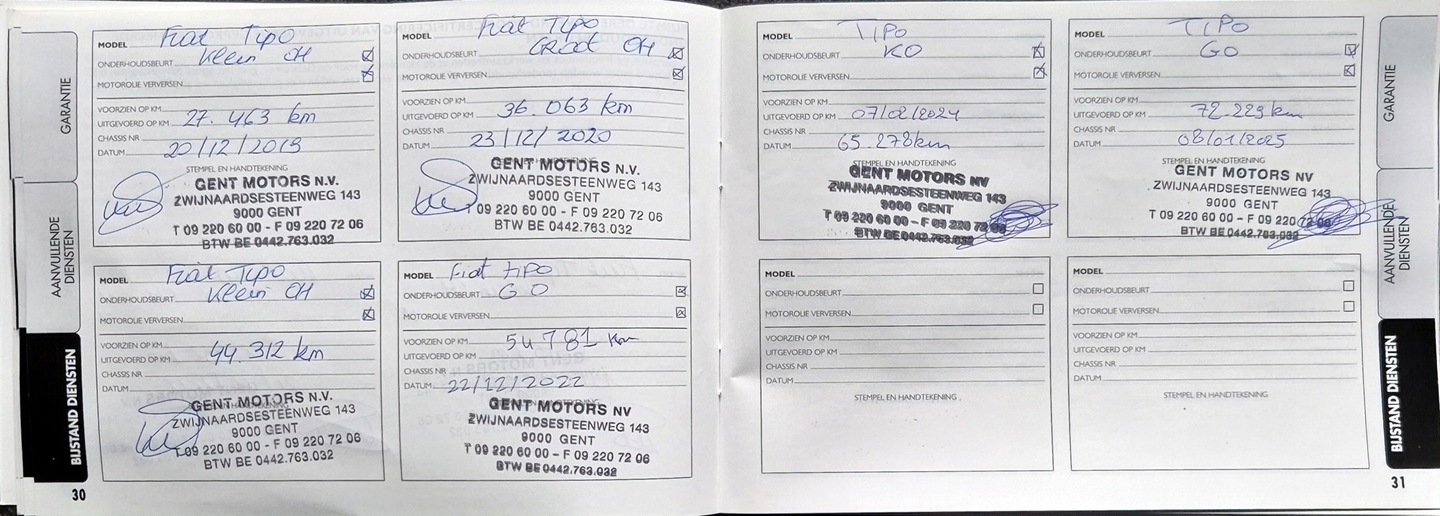 GARANTIE
AANVULLENDE
DIENSTEN
BIJSTAND DIENSTEN
MODEL Fiat Tipo
ONDERHOUDSBEURT Klein OH
MOTOROLIE VERVERSEN
VOORZIEN OP KM
UITGEVOERD OP KM 27.463 km
CHASSIS NR
DATUM 20/12/2019
STEMPEL EN HANDTEKENING
GENT MOTORS N.V.
ZWIJNAARDSESTEENWEG 143
9000 GENT
T 09 220 60 00 - F 09 220 72 06
BTW BE 0442.763.032
MODEL Fiat Tipo
ONDERHOUDSBEURT Groot OH
MOTOROLIE VERVERSEN
VOORZIEN OP KM
UITGEVOERD OP KM 36.063 km
CHASSIS NR
DATUM 23/12/2020
STEMPEL EN HANDTEKENING
GENT MOTORS N.V.
ZWIJNAARDSESTEENWEG 143
9000 GENT
T 09 220 60 00 - F 09 220 72 06
BTW BE 0442.763.032
MODEL Fiat Tipo
ONDERHOUDSBEURT Klein OH
MOTOROLIE VERVERSEN
VOORZIEN OP KM
UITGEVOERD OP KM 44.312 km
CHASSIS NR
DATUM
GENT MOTORS N.V.
ZWIJNAARDSESTEENWEG 143
9000 GENT
T 09 220 60 00 - F 09 220 72 06
BTW BE 0442.763.032
MODEL Fiat tipo
ONDERHOUDSBEURT GO
MOTOROLIE VERVERSEN
VOORZIEN OP KM 54781 km
UITGEVOERD OP KM
CHASSIS NR
DATUM 22/12/2022
GENT MOTORS NV
ZWIJNAARDSESTEENWEG 143
9000 GENT
T 09 220 60 00 - F 09 220 72 06
BTW BE 0442.763.032
30
MODEL TIPO
ONDERHOUDSBEURT KO
MOTOROLIE VERVERSEN
VOORZIEN OP KM
UITGEVOERD OP KM 07/02/2024
CHASSIS NR
DATUM 65.278km
STEMPEL EN HANDTEKENING
GENT MOTORS NV
ZWIJNAARDSESTEENWEG 143
9000 GENT
T 09 220 60 00 - F 09 220 72 06
BTW BE 0442.763.032
MODEL TIPO
ONDERHOUDSBEURT GO
MOTOROLIE VERVERSEN
VOORZIEN OP KM
UITGEVOERD OP KM 72.229km
CHASSIS NR
DATUM 08/01/2025
STEMPEL EN HANDTEKENING
GENT MOTORS NV
ZWIJNAARDSESTEENWEG 143
9000 GENT
T 09 220 60 00 - F 09 220 72 06
BTW BE 0442.763.032
MODEL
ONDERHOUDSBEURT
MOTOROLIE VERVERSEN
VOORZIEN OP KM
UITGEVOERD OP KM
CHASSIS NR
DATUM
STEMPEL EN HANDTEKENING
MODEL
ONDERHOUDSBEURT
MOTOROLIE VERVERSEN
VOORZIEN OP KM
UITGEVOERD OP KM
CHASSIS NR
DATUM
STEMPEL EN HANDTEKENING
GARANTIE
AANVULLENDE
DIENSTEN
BIJSTAND DIENSTEN
31